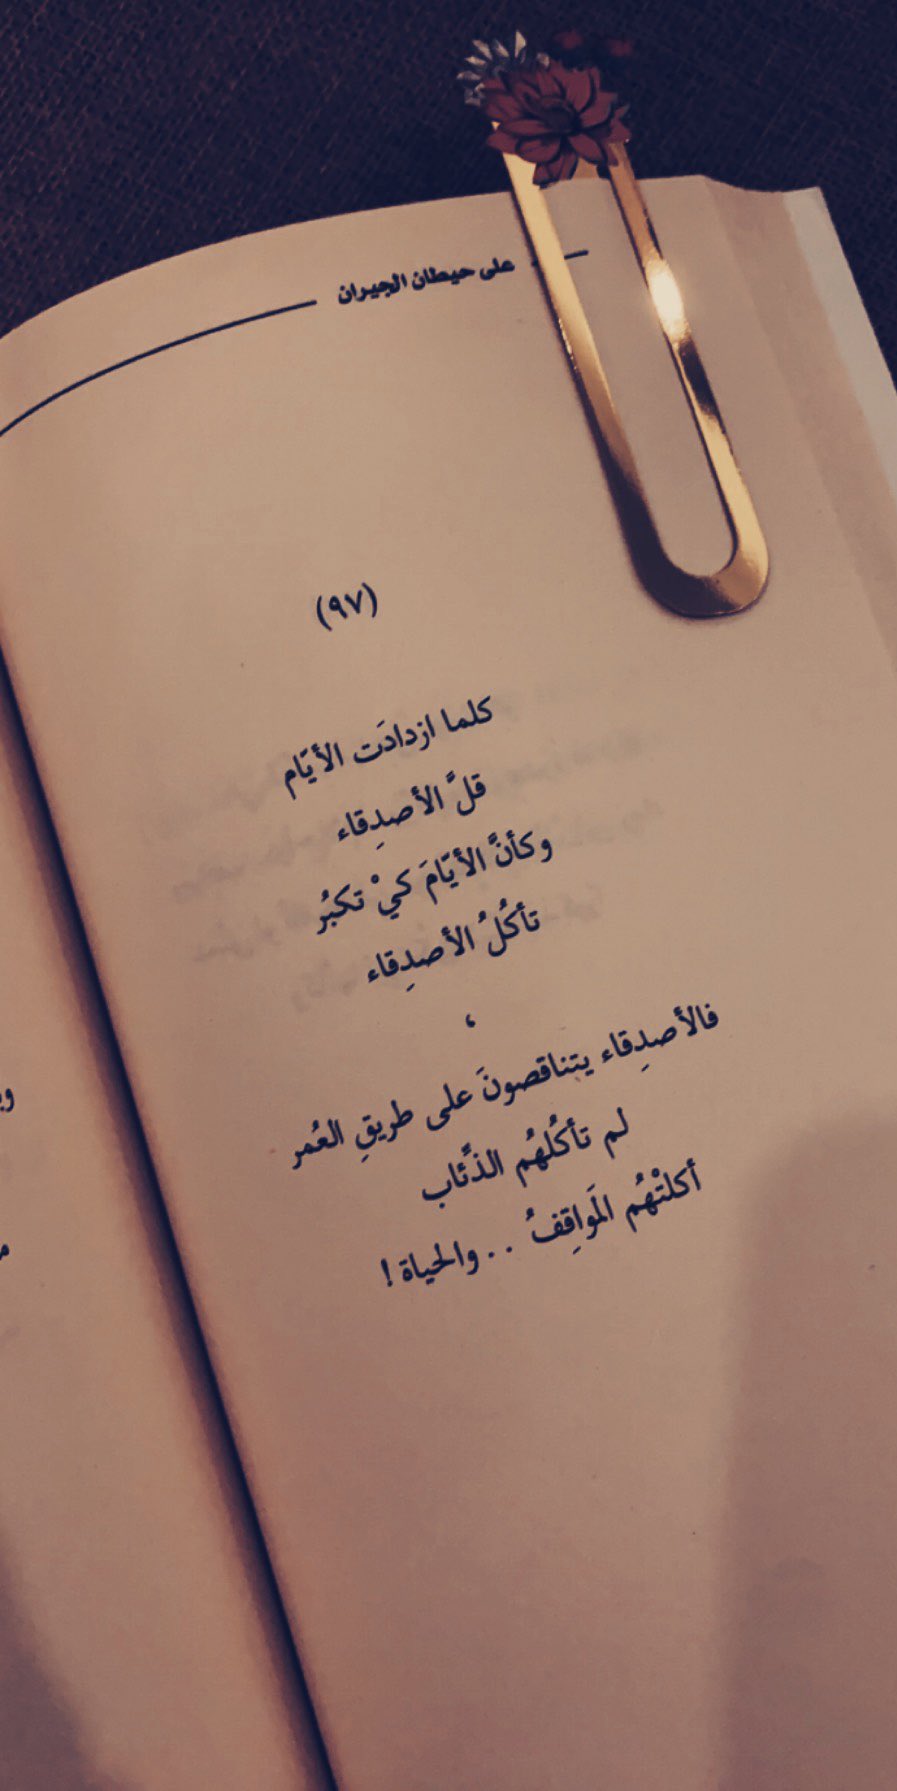 على حيطان الجيران
(٩٧)
كلما ازدادَت الأيّام
قلَّ الأصدِقاء
وكأنَّ الأيّامَ كيْ تكبُر
تأكُلُ الأصدِقاء
،
فالأصدِقاء يتناقصونَ على طريقِ العُمر
لم تأكُلهُم الذِّئاب
أكلتْهُم المَواقِفُ .. والحياة !